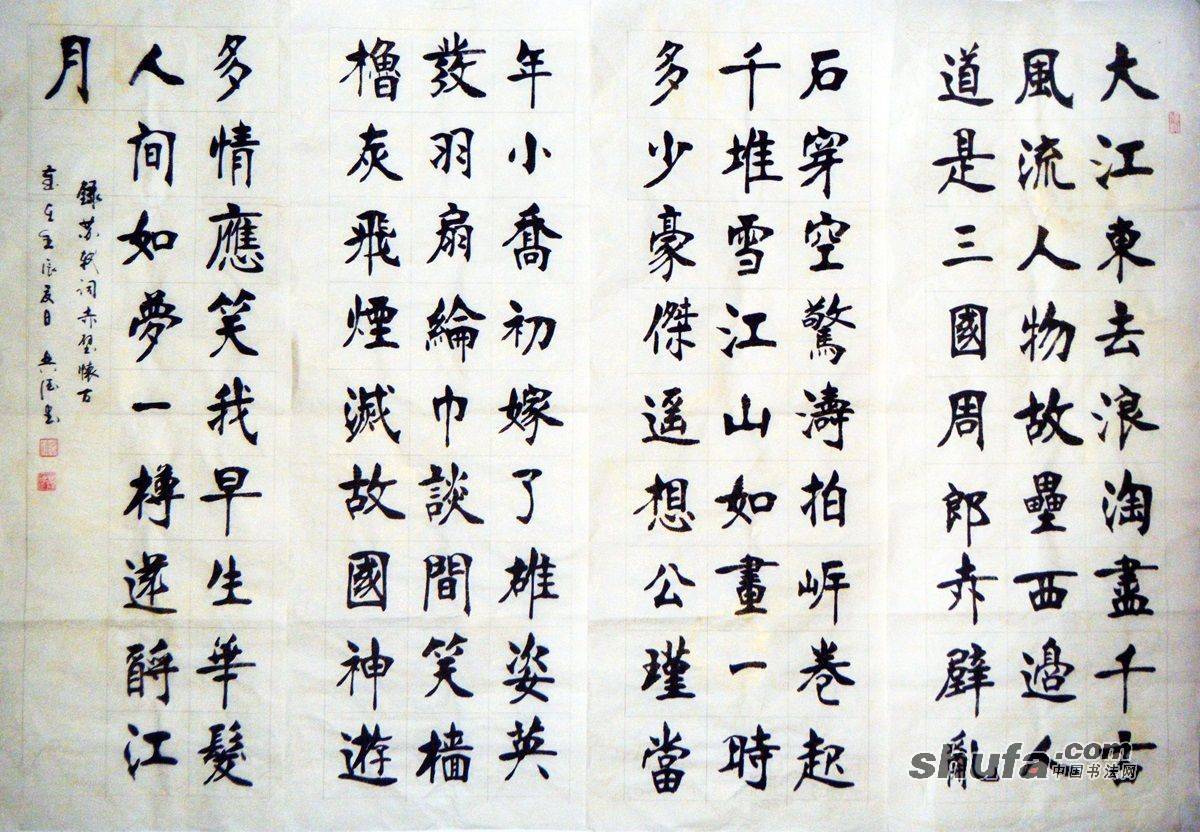 大江東去浪淘盡千古
風流人物故壘西邉人
道是三國周郎赤壁亂
石穿空驚濤拍岸卷起
千堆雪江山如畫一時
多少豪傑遥想公瑾當
年小喬初嫁了雄姿英
發羽扇綸巾談間笑檣
櫓灰飛煙滅故國神遊
多情應笑我早生華髮
人间如夢一樽還酹江
月
録苏軾词赤壁懷古
歲在壬辰夏日
shufa.com
中国书法网